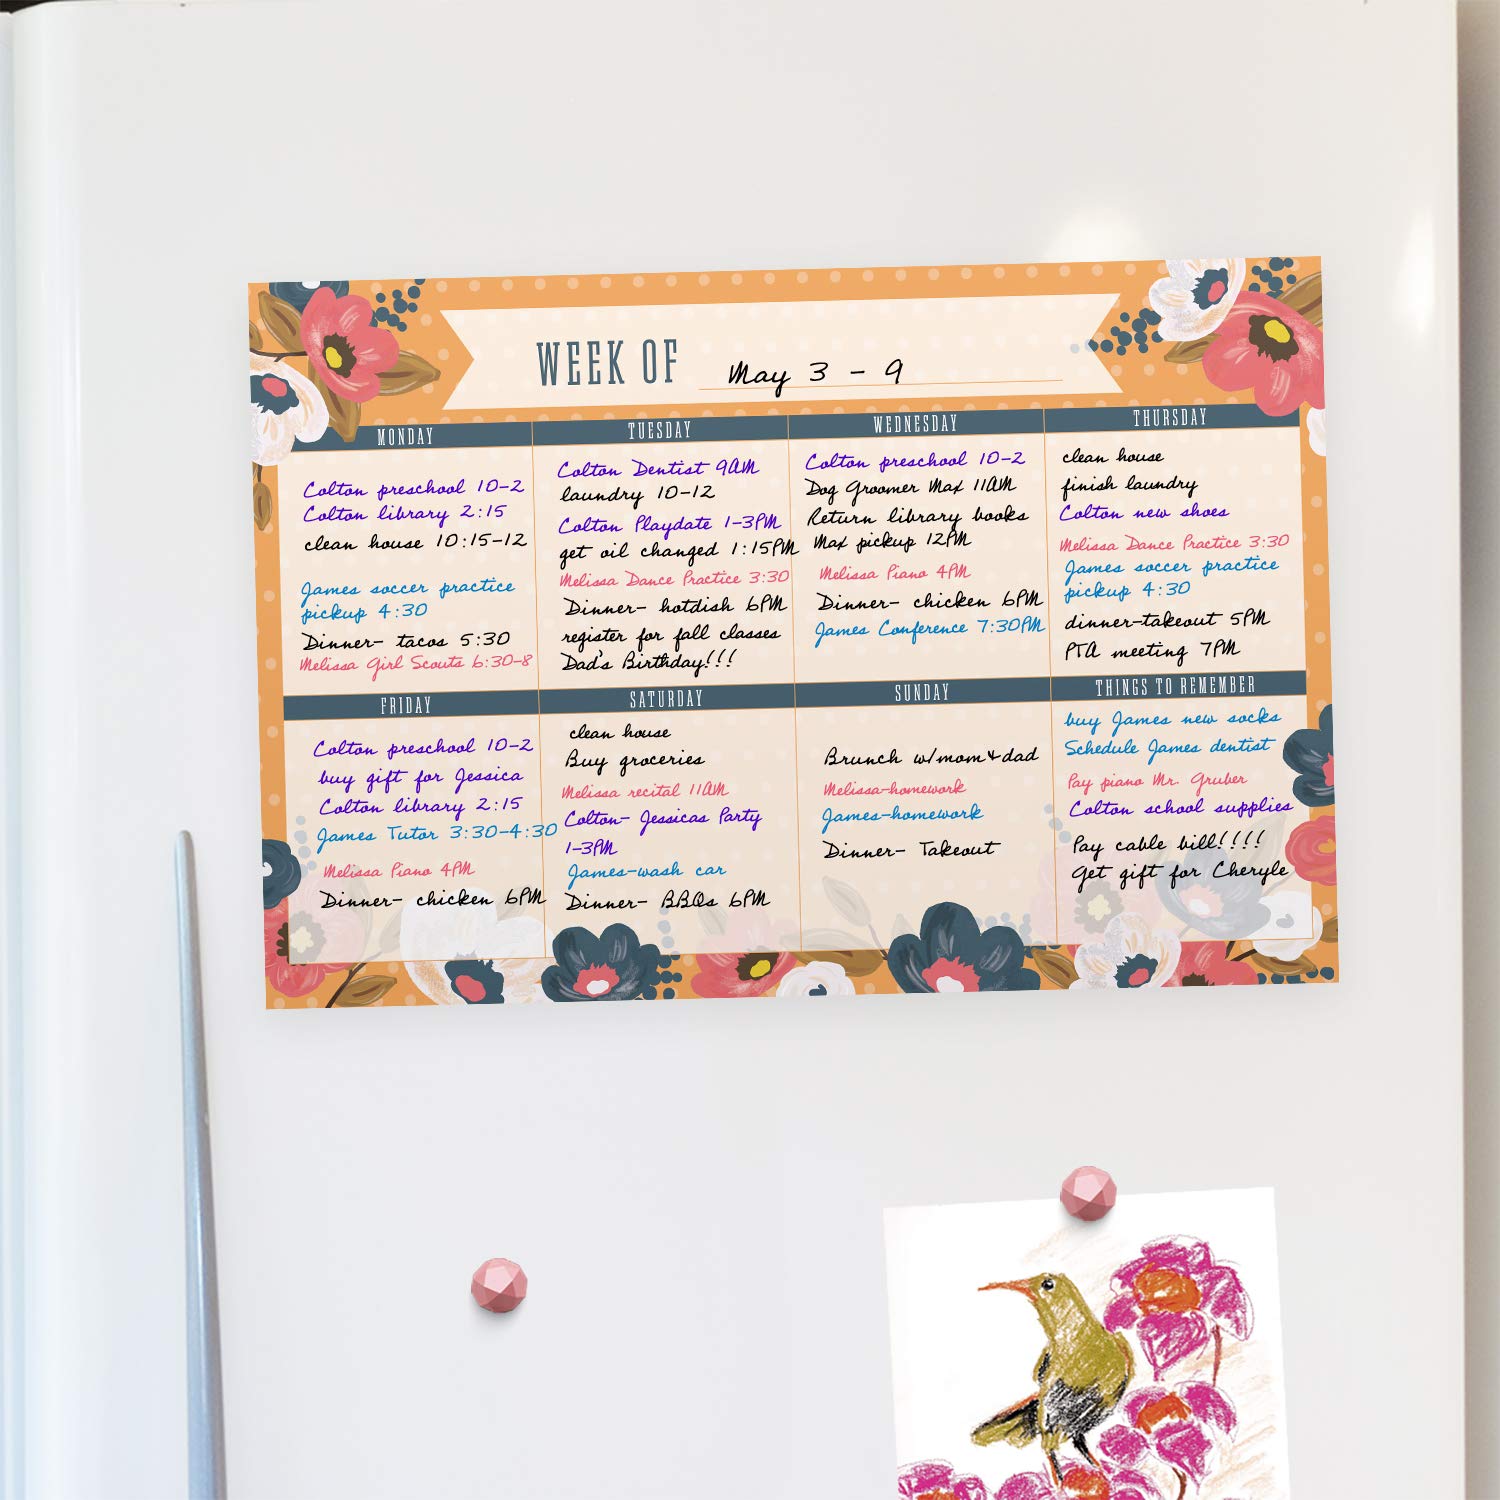 WEEK OF May 3 - 9
MONDAY
Colton preschool 10-2
Colton library 2:15
clean house 10:15-12
James soccer practice
pickup 4:30
Dinner- tacos 5:30
Melissa Girl Scouts 6:30-8
TUESDAY
Colton Dentist 9AM
laundry 10-12
Colton Playdate 1-3PM
get oil changed 1:15PM
Melissa Dance Practice 3:30
Dinner- hotdish 6PM
register for fall classes
Dad's Birthday!!!
WEDNESDAY
Colton preschool 10-2
Dog Groomer Max 11AM
Return library books
Max pickup 12PM
Melissa Piano 4PM
Dinner- chicken 6PM
James Conference 7:30PM
THURSDAY
clean house
finish laundry
Colton new shoes
Melissa Dance Practice 3:30
James soccer practice
pickup 4:30
dinner-takeout 5PM
PTA meeting 7PM
FRIDAY
Colton preschool 10-2
buy gift for Jessica
Colton library 2:15
James Tutor 3:30-4:30
Melissa Piano 4PM
Dinner- chicken 6PM
SATURDAY
clean house
Buy groceries
Melissa recital 11AM
Colton- Jessicas Party
1-3PM
James-wash car
Dinner- BBQs 6PM
SUNDAY
Brunch w/mom+dad
Melissa-homework
James-homework
Dinner- Takeout
THINGS TO REMEMBER
buy James new socks
Schedule James dentist
Pay piano Mr. Gruber
Colton school supplies
Pay cable bill!!!!
Get gift for Cheryle